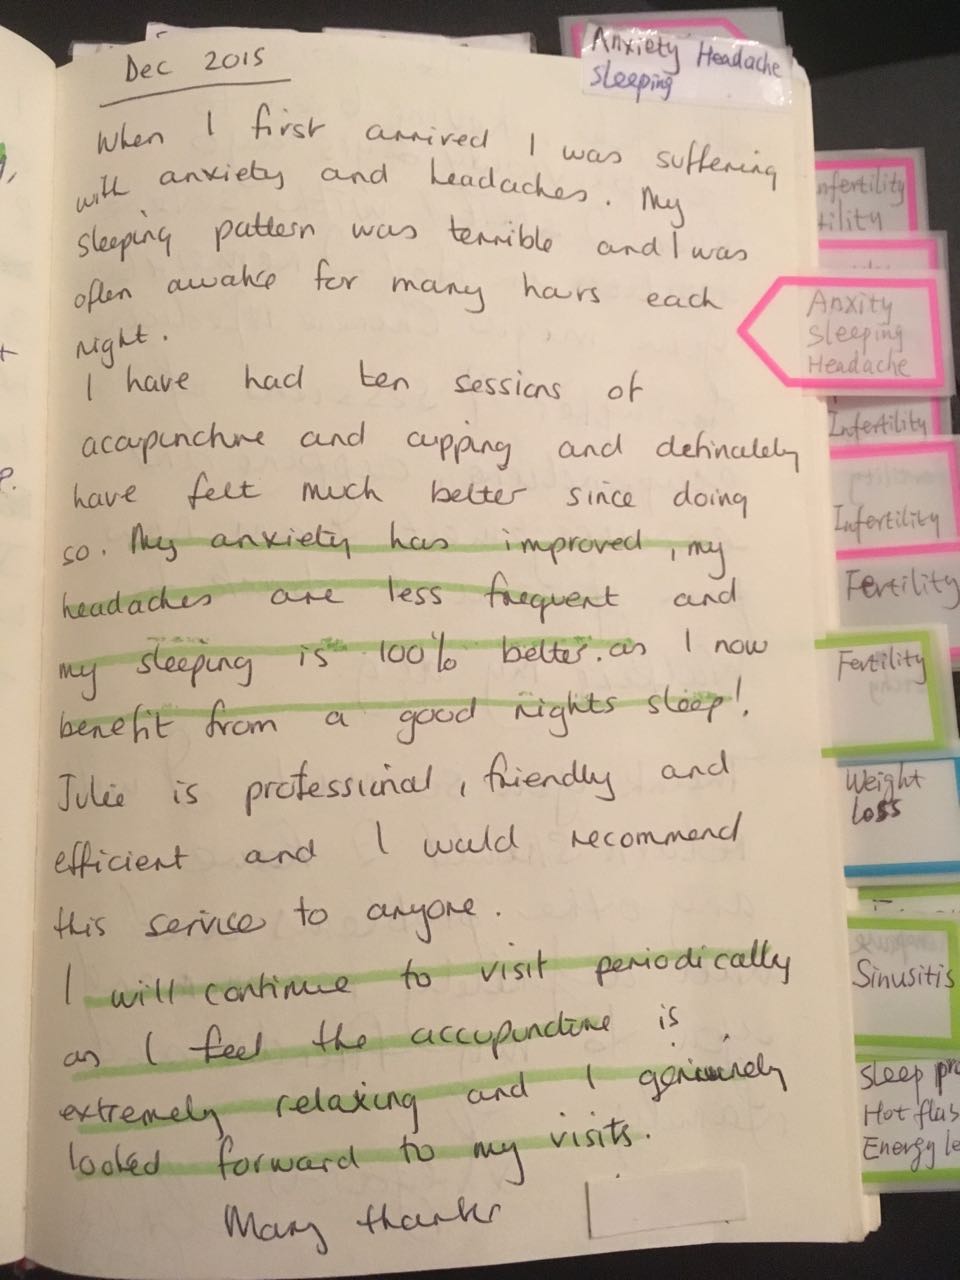 Dec 2015
Anxiety Headache
sleeping
When I first arrived I was suffering
with anxiety and headaches. My
sleeping pattern was terrible and I was
often awake for many hours each
night.
I have had ten sessions of
acupuncture and cupping and definately
have felt much better since doing
so. My anxiety has improved, my
headaches are less frequent and
my sleeping is 100% better. as I now
benefit from a good nights sleep!
Julie is professional, friendly and
efficient and I would recommend
this service to anyone.
I will continue to visit periodically
as I feel the accupuncture is
extremely relaxing and I genuinely
looked forward to my visits.
Many thanks
nfertility
tility
Anxity
Sleeping
Headache
Infertility
Infertility
Fertility
Fertility
Weight
Loss
Sinusitis
Sleep pro
Hot flas
Energy le